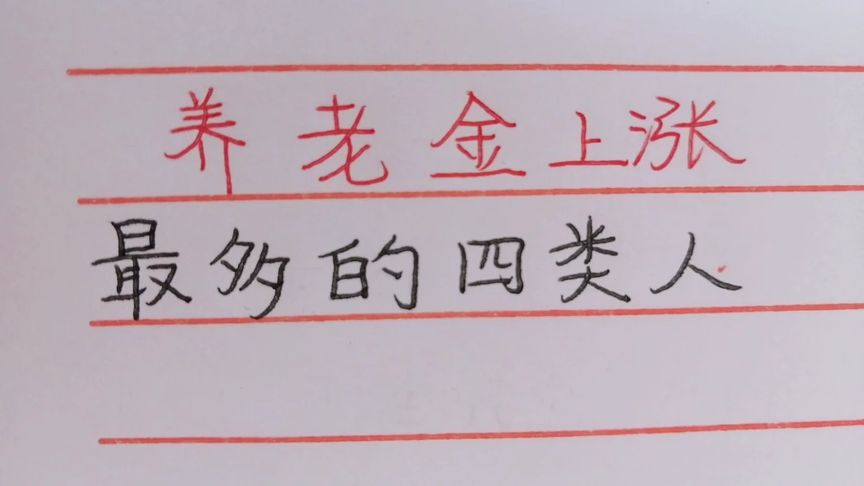 养老金上涨
最多的四类人